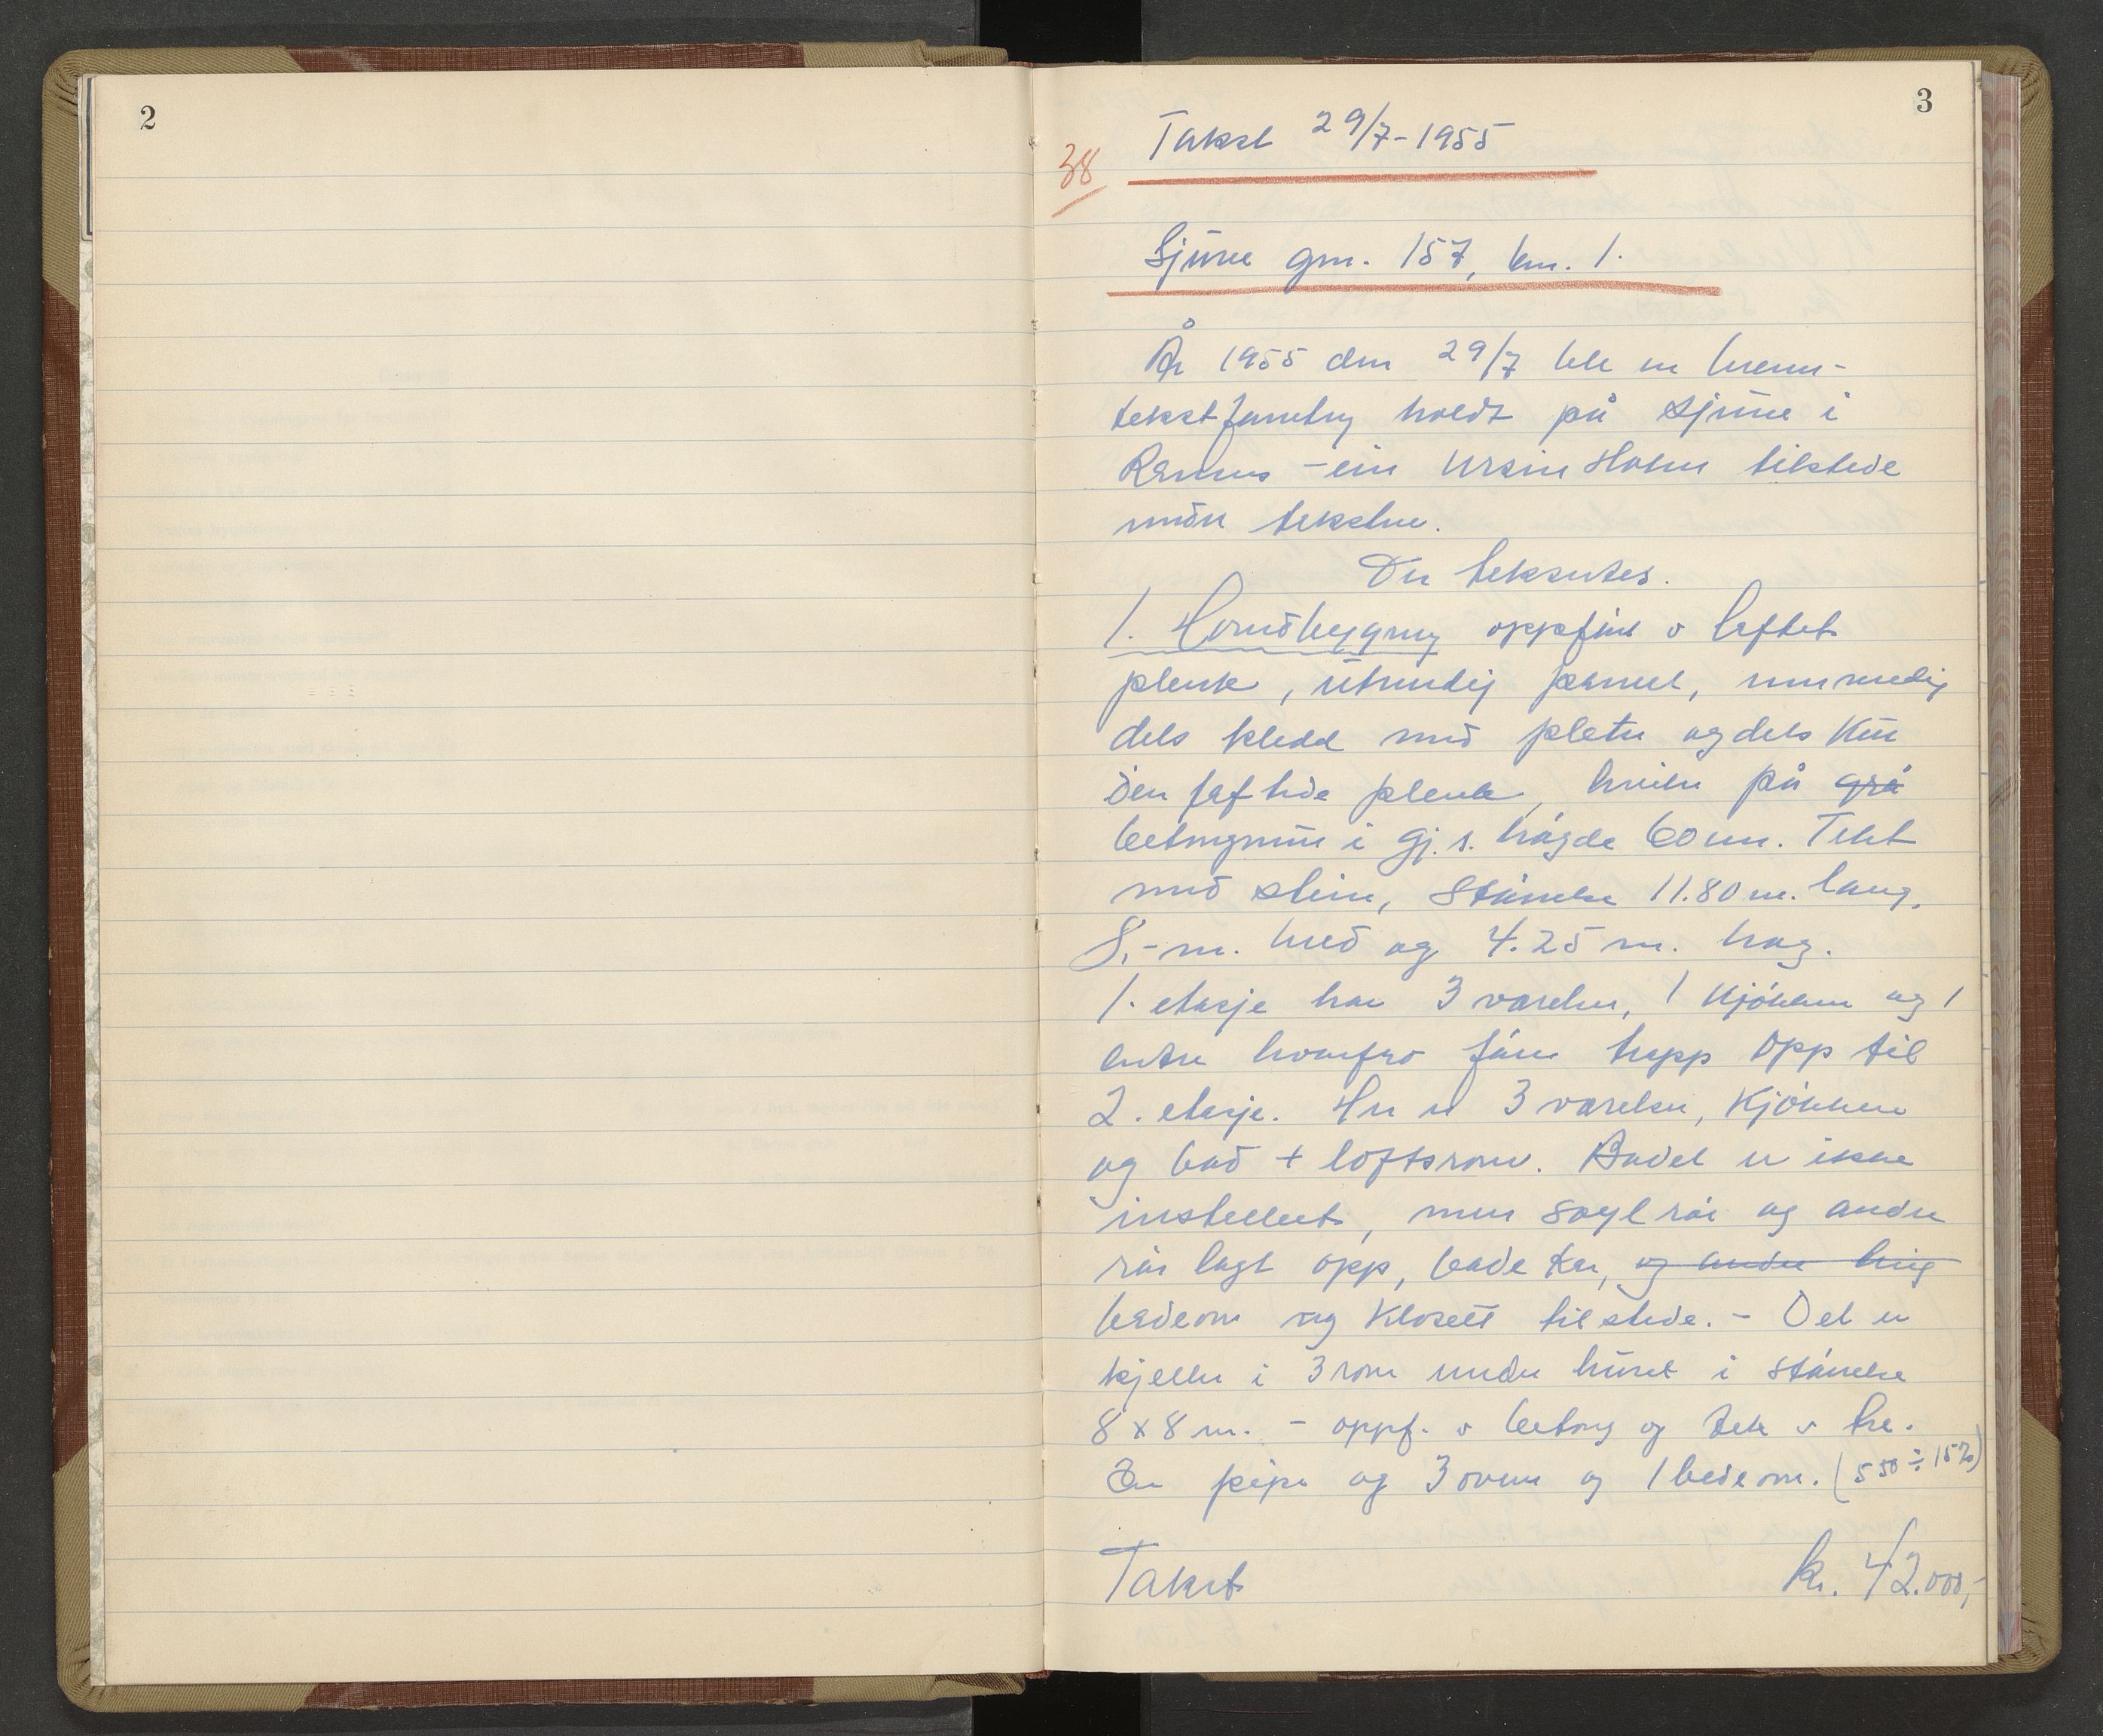 2
3
38
Takst 29/7-1955
Sjúne gnr. 157, bnr. 1.
År 1955 den 29/7 ble en brann-
takstforretng holdt på Sjúne i
Ramnes - eier Ursin Holm tilstede
under taksten.
Der taksertes.
1. Hovedbygnng oppført v laftet
plank, útvendig panel, innvendig
dels kledd med plater og dels kún
den laftede plank, hviler på grå
betongmúr i gj.s. høgde 60 cm. Tekt
med stein, Størrelse 11.80 m. lang,
8,- m. bred og 4.25 m. høg.
1. etasje har 3 værelser, 1 Kjøkken og 1
entre hvorfra fører trapp opp til
2. etasje. Her er 3 værelser, Kjøkken
og bad + loftsrom. Badet er ikke
installert, men soylrør og andre
rør lagt opp, badekar, og andre ting
badeovn og Klosett tilstede. - Det er
kjeller i 3 rom under húset i størrelse
8 x 8 m. - oppf. v betong og tak v tre.
En pipe og 3 ovner og 1 badeovn. (550 ÷ 15%)
Takst kr. 42.000,-